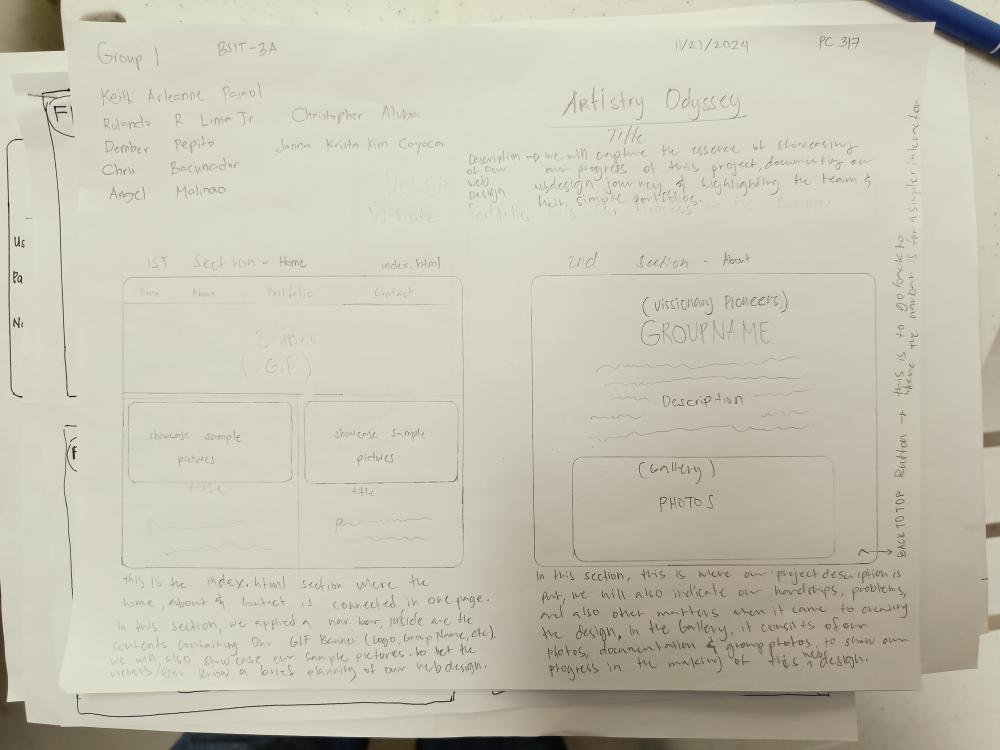 Group 1
BSIT-3A
11/21/2024
PC 317
Keith Arleanne Pagnol
Rolando R Lima Jr
Christopher Aluba
Dember Pepito
Janna Krista Kim Coyoca
Chris Bacunador
Angel Molinao
Artistry Odyssey
Title
Description → we will capture the essence of showcasing
of our our progress of this project, documenting our
web webdesign journey, & highlighting the team &
Design their simple portfolios.
Design
Website
1ST Section - Home index.html
Home About Portfolio Contact
Banner
(.GIF)
showcase sample
pictures
title
showcase sample
pictures
title
this is the index.html section where the
home, about & contact is connected in one page.
In this section, we applied a nav. bar, inside are the
contents containing Our GIF Banner (Logo, Group Name, etc).
we will also showcase our sample pictures. to let the
viewers/User know a brief planning of our webdesign.
2nd Section - About
(Vissionary Pioneers)
GROUPNAME
Description
(Gallery)
PHOTOS
BACK TO TOP Button → this is to go back to
where the navbar is for a simpler interaction
In this section, this is where our project description is
put, we will also indicate our hardships, problems,
and also other matters when it came to creating
the design. In the Gallery, it consists of our
photos, documentation & group photos, to show our
progress in the making of this web design.
F
Us
Pa